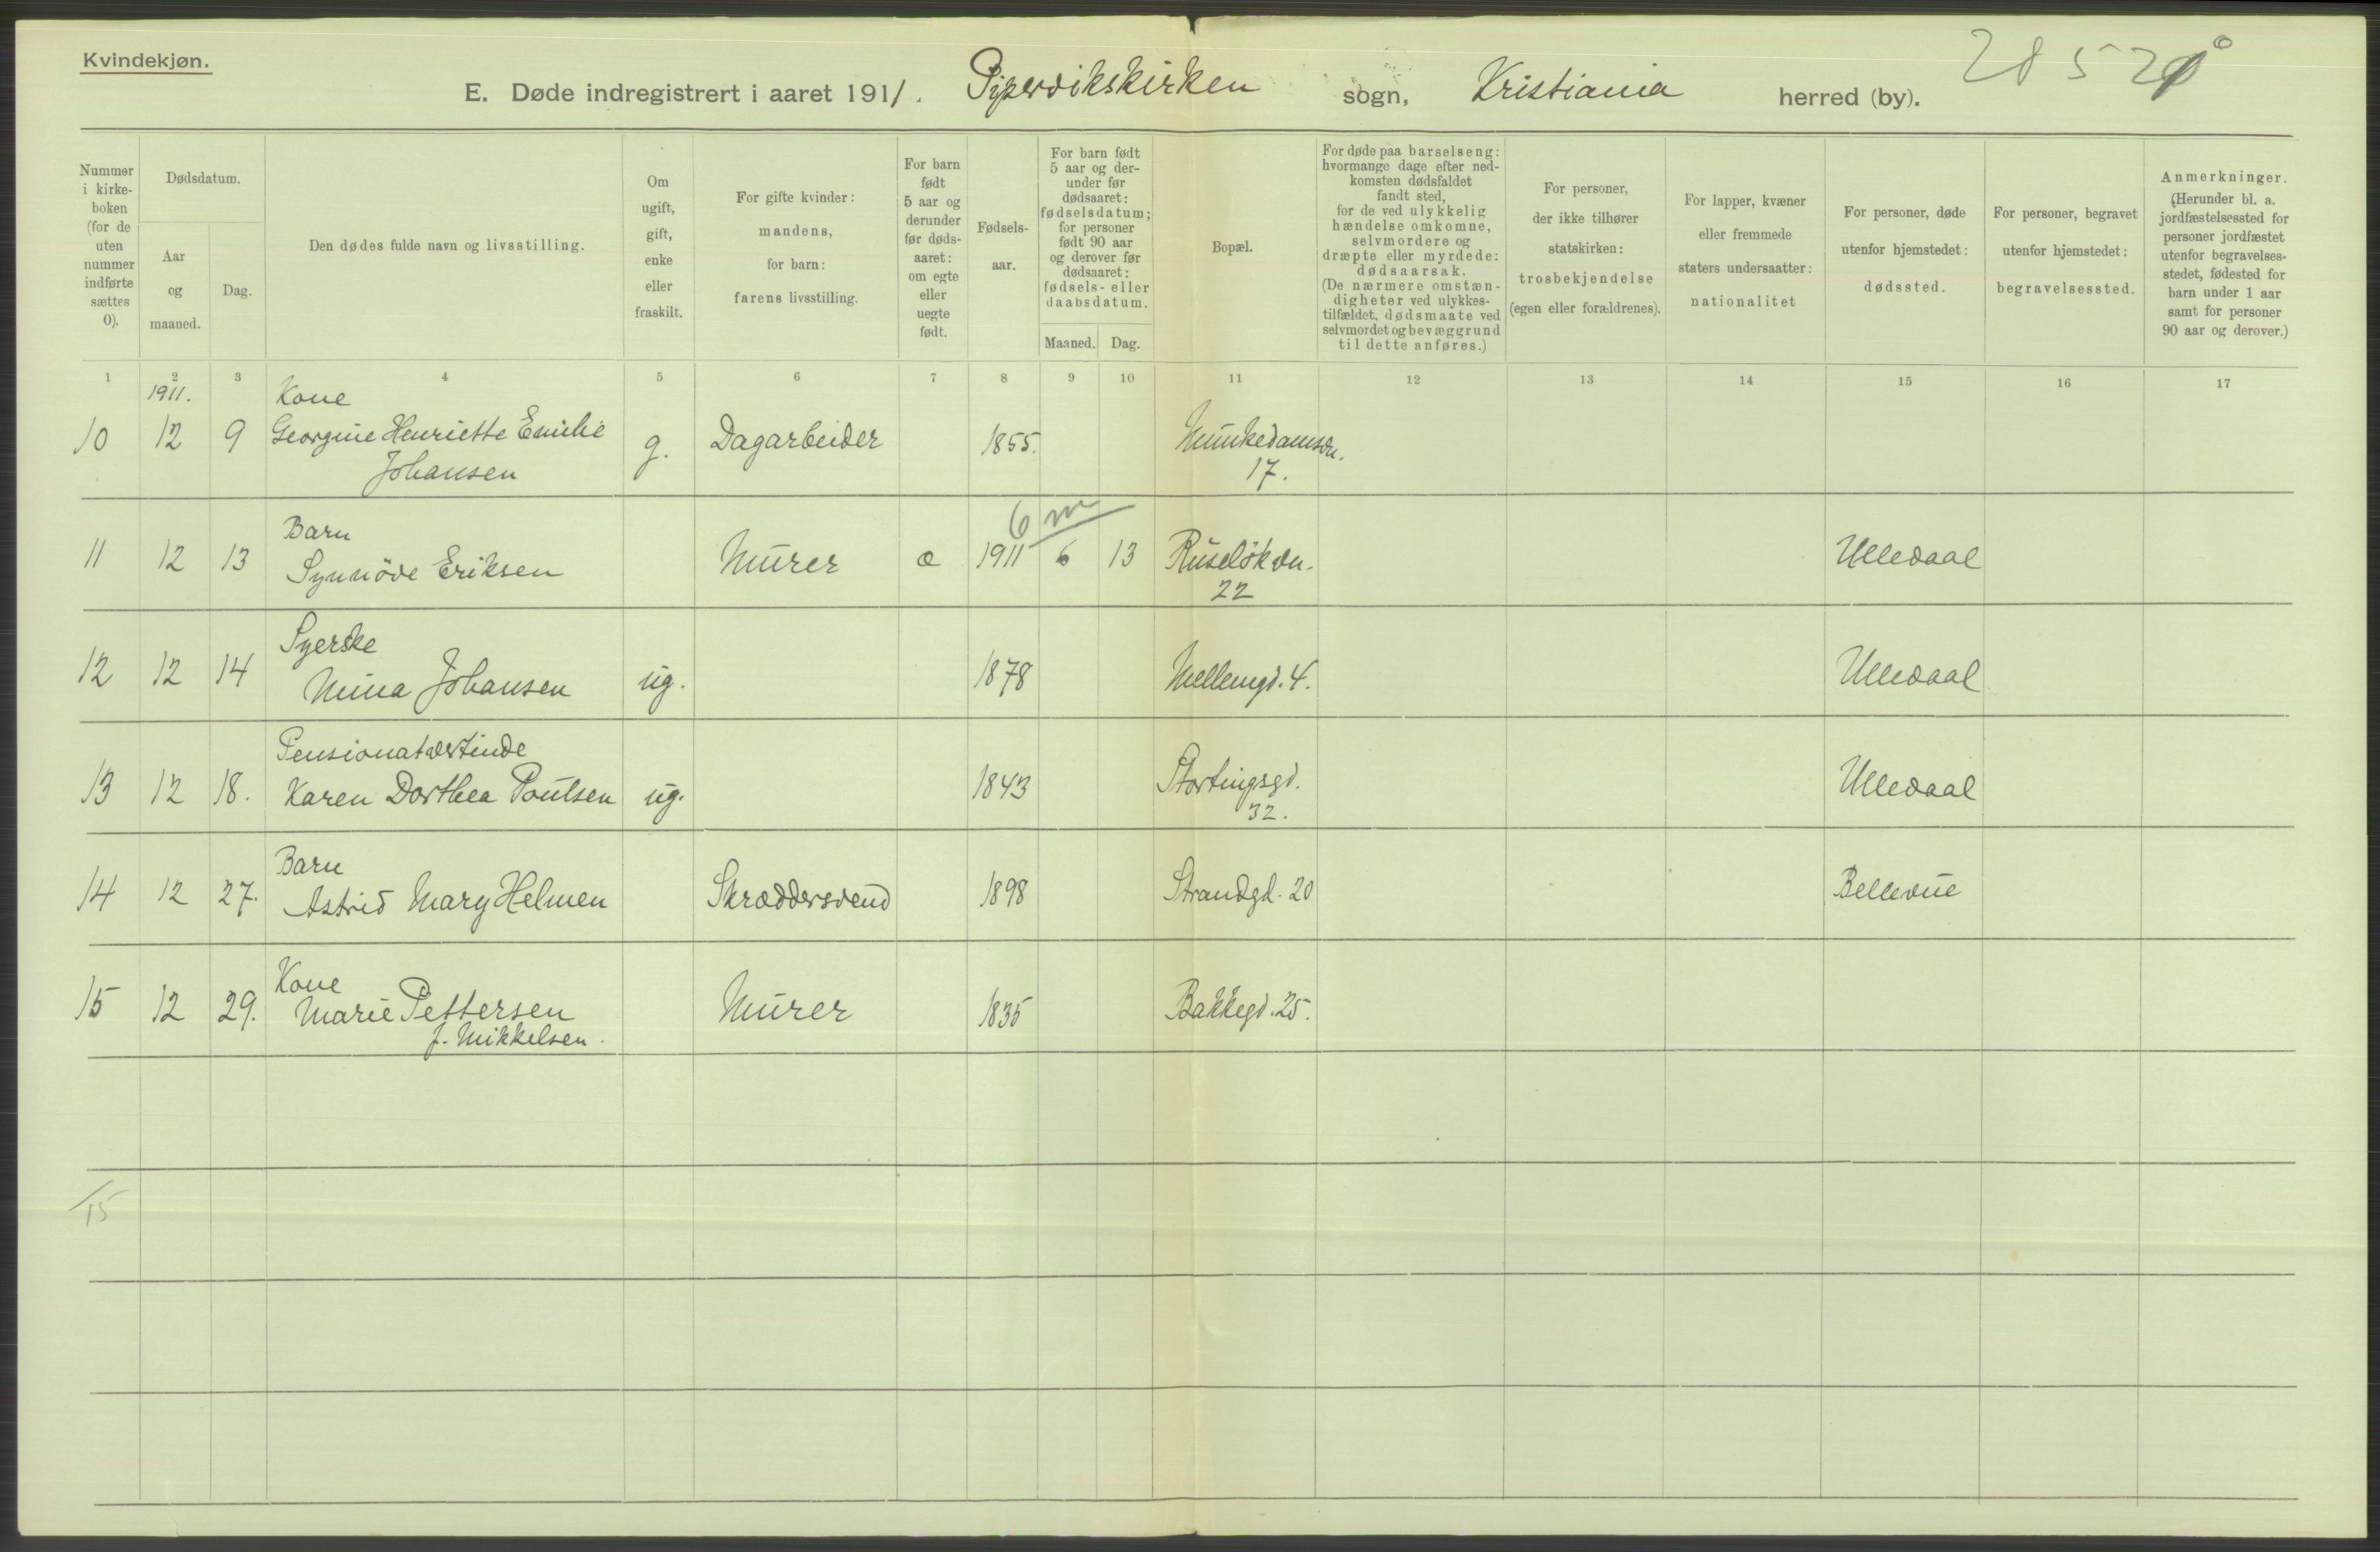 Kvindekjøn.
E. Døde indregistrert i aaret 1911. Pipervikskirken sogn, Kristiania herred (by).
Nummer i kirke-boken (for de uten nummer indførte sættes 0).
Dødsdatum.
Aar og maaned.
Dag.
Den dødes fulde navn og livsstilling.
Om ugift, gift, enke eller fraskilt.
For gifte kvinder: mandens, for barn: farens livsstilling.
For barn født 5 aar og derunder før døds-aaret: om egte eller uegte født.
Fødsels-aar.
For barn født 5 aar og der-under før dødsaaret: fødselsdatum; for personer født 90 aar og derover før dødsaaret: fødsels- eller daabsdatum.
Maaned. Dag.
Bopæl.
For døde paa barselseng: hvormange dage efter ned-komsten dødsfaldet fandt sted, for de ved ulykkelig hændelse omkomne, selvmordere og dræpte eller myrdede: dødsaarsak. (De nærmere omstæn-digheter ved ulykkes-tilfældet, dødsmaate ved selvmordet og bevæggrund til dette anføres.)
For personer, der ikke tilhører statskirken: trosbekjendelse (egen eller forældrenes).
For lapper, kvæner eller fremmede staters undersaatter: nationalitet
For personer, døde utenfor hjemstedet: dødssted.
For personer, begravet utenfor hjemstedet: begravelsessted.
Anmerkninger. (Herunder bl. a. jordfæstelsessted for personer jordfæstet utenfor begravelses-stedet, fødested for barn under 1 aar samt for personer 90 aar og derover.)
1 2 3 4 5 6 7 8 9 10 11 12 13 14 15 16 17
1911. Kone
10 12 9 Georgine Henriette Emilie g. Dagarbeider 1855. Munkedamsvn.
Johansen 17.
6 m
Barn
11 12 13 Synnöve Eriksen Murer e 1911 6 13 Ruselökvn. Ulledaal
22
Syerske
12 12 14 Mina Johansen ug. 1878 Mellemgd. 4. Ulledaal
Pensionatvertinde
13 12 18. Karen Dorthea Poulsen ug. 1843 Stortingsgd. Ulledaal
32.
Barn
14 12 27. Astrid Mary Helmen Skræddersvend 1898 Strandgd. 20 Bellevue
Kone
15 12 29. Marie Pettersen Murer 1835 Bakkegd. 25.
f. Mikkelsen.
15